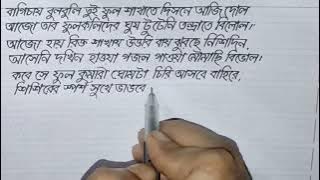 বাগিচায় বুলবুলি তুই ফুল শাখাতে দিসনে আজি দোল
আজো তার ফুলকলিদের ঘুম টুটেনি তন্দ্রাতে বিলোল।
আজো হায় রিক্ত শাখায় উত্তরি বায় ঝুরছে নিশিদিন,
আসেনি দখিন হাওয়া গজল গাওয়া মৌমাছি বিভোল।
কবে সে ফুল কুমারী ঘোমটা চিরি আসবে বাহিরে,
শিশিরের স্পর্শ সুখে ভাঙবে